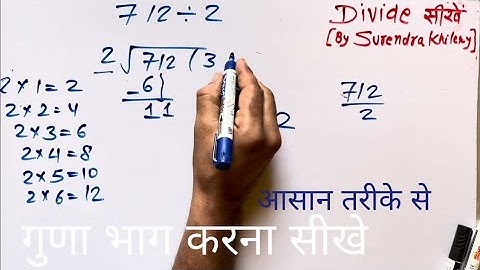 712÷2
Divide सीखें
[By Surendra Khilery]
2√712(3
-6
11
2×1=2
2×2=4
2×3=6
2×4=8
2×5=10
2×6=12
712
2
2
आसान तरीके से
गुणा भाग करना सीखे